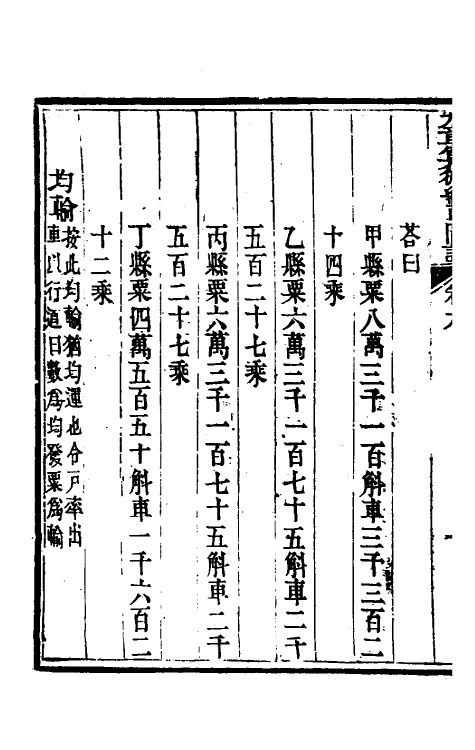 荅曰
甲縣粟八萬三千一百斛車三千三百二
十四乘
乙縣粟六萬三千一百七十五斛車二千
五百二十七乘
丙縣粟六萬三千一百七十五斛車二千
五百二十七乘
丁縣粟四萬五百五十斛車一千六百二
十二乘
均輸按此均輸猶均運也令戶率出
車以行道日數為均發粟為輸